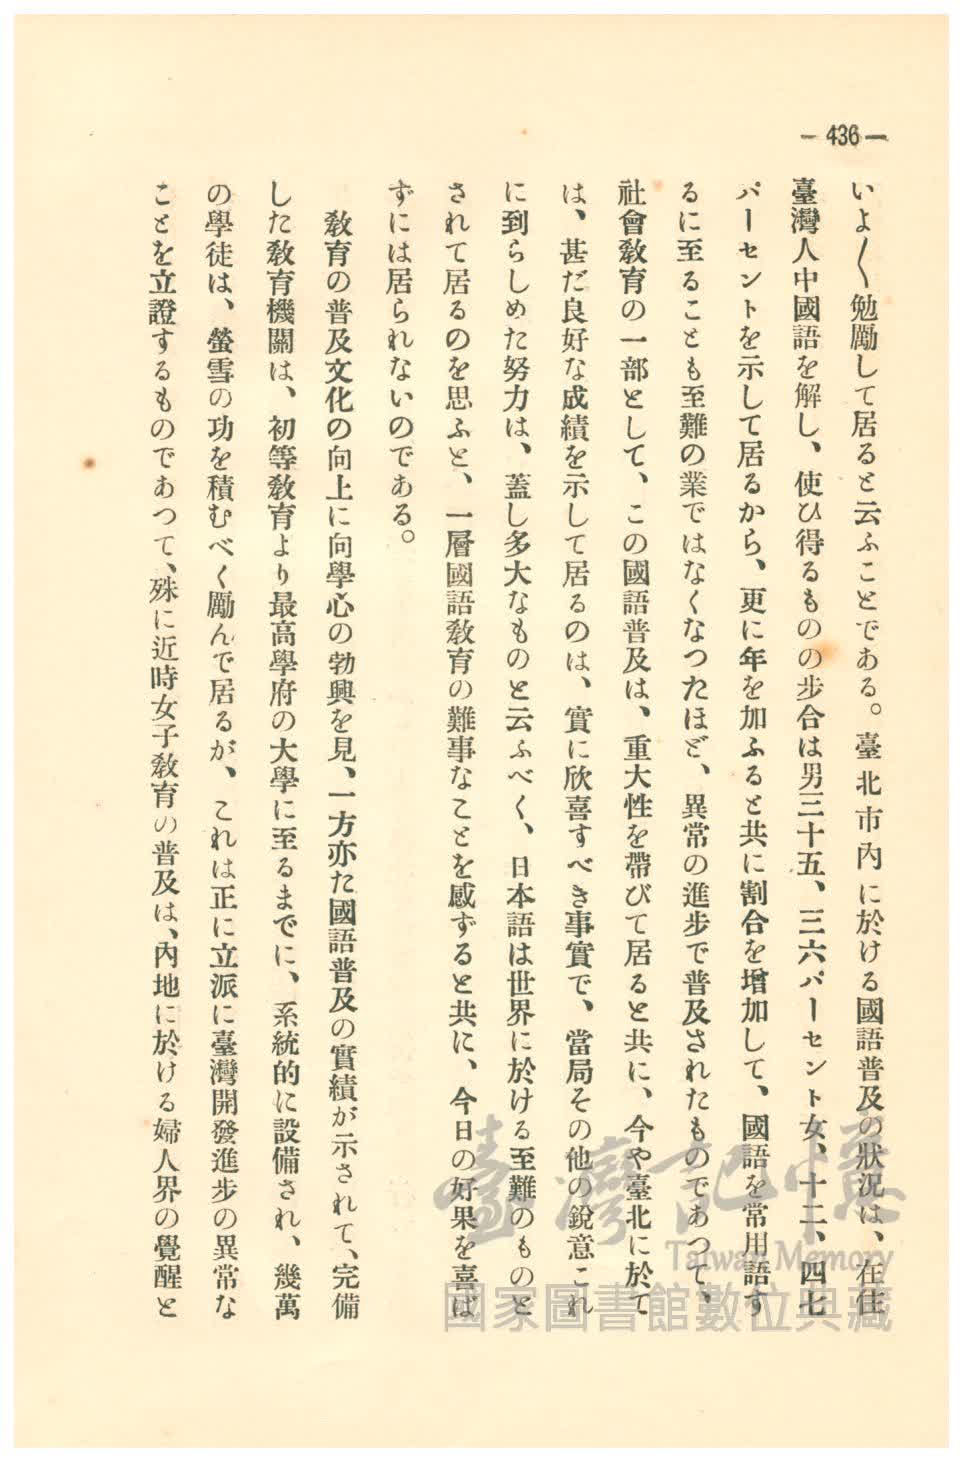 ― 436 ―
いよ〱勉勵して居ると云ふことである。臺北市內に於ける國語普及の狀況は、在住
臺灣人中國語を解し、使ひ得るものの步合は男三十五、三六パーセント女、十二、四七
パーセントを示して居るから、更に年を加ふると共に割合を增加して、國語を常用語す
るに至ることも至難の業ではなくなつたほど、異常の進步で普及されたものであつて、
社會敎育の一部として、この國語普及は、重大性を帶びて居ると共に、今や臺北に於て
は、甚だ良好な成績を示して居るのは、實に欣喜すべき事實で、當局その他の銳意これ
に到らしめた努力は、蓋し多大なものと云ふべく、日本語は世界に於ける至難のものと
されて居るのを思ふと、一層國語敎育の難事なことを感ずると共に、今日の好果を喜ば
ずには居られないのである。
敎育の普及文化の向上に向學心の勃興を見、一方亦た國語普及の實績が示されて、完備
した敎育機關は、初等敎育より最高學府の大學に至るまでに、系統的に設備され、幾萬
の學徒は、螢雪の功を積むべく勵んで居るが、これは正に立派に臺灣開發進步の異常な
ことを立證するものであつて、殊に近時女子敎育の普及は、內地に於ける婦人界の覺醒と
臺灣記憶
Taiwan Memory
國家圖書館數位典藏